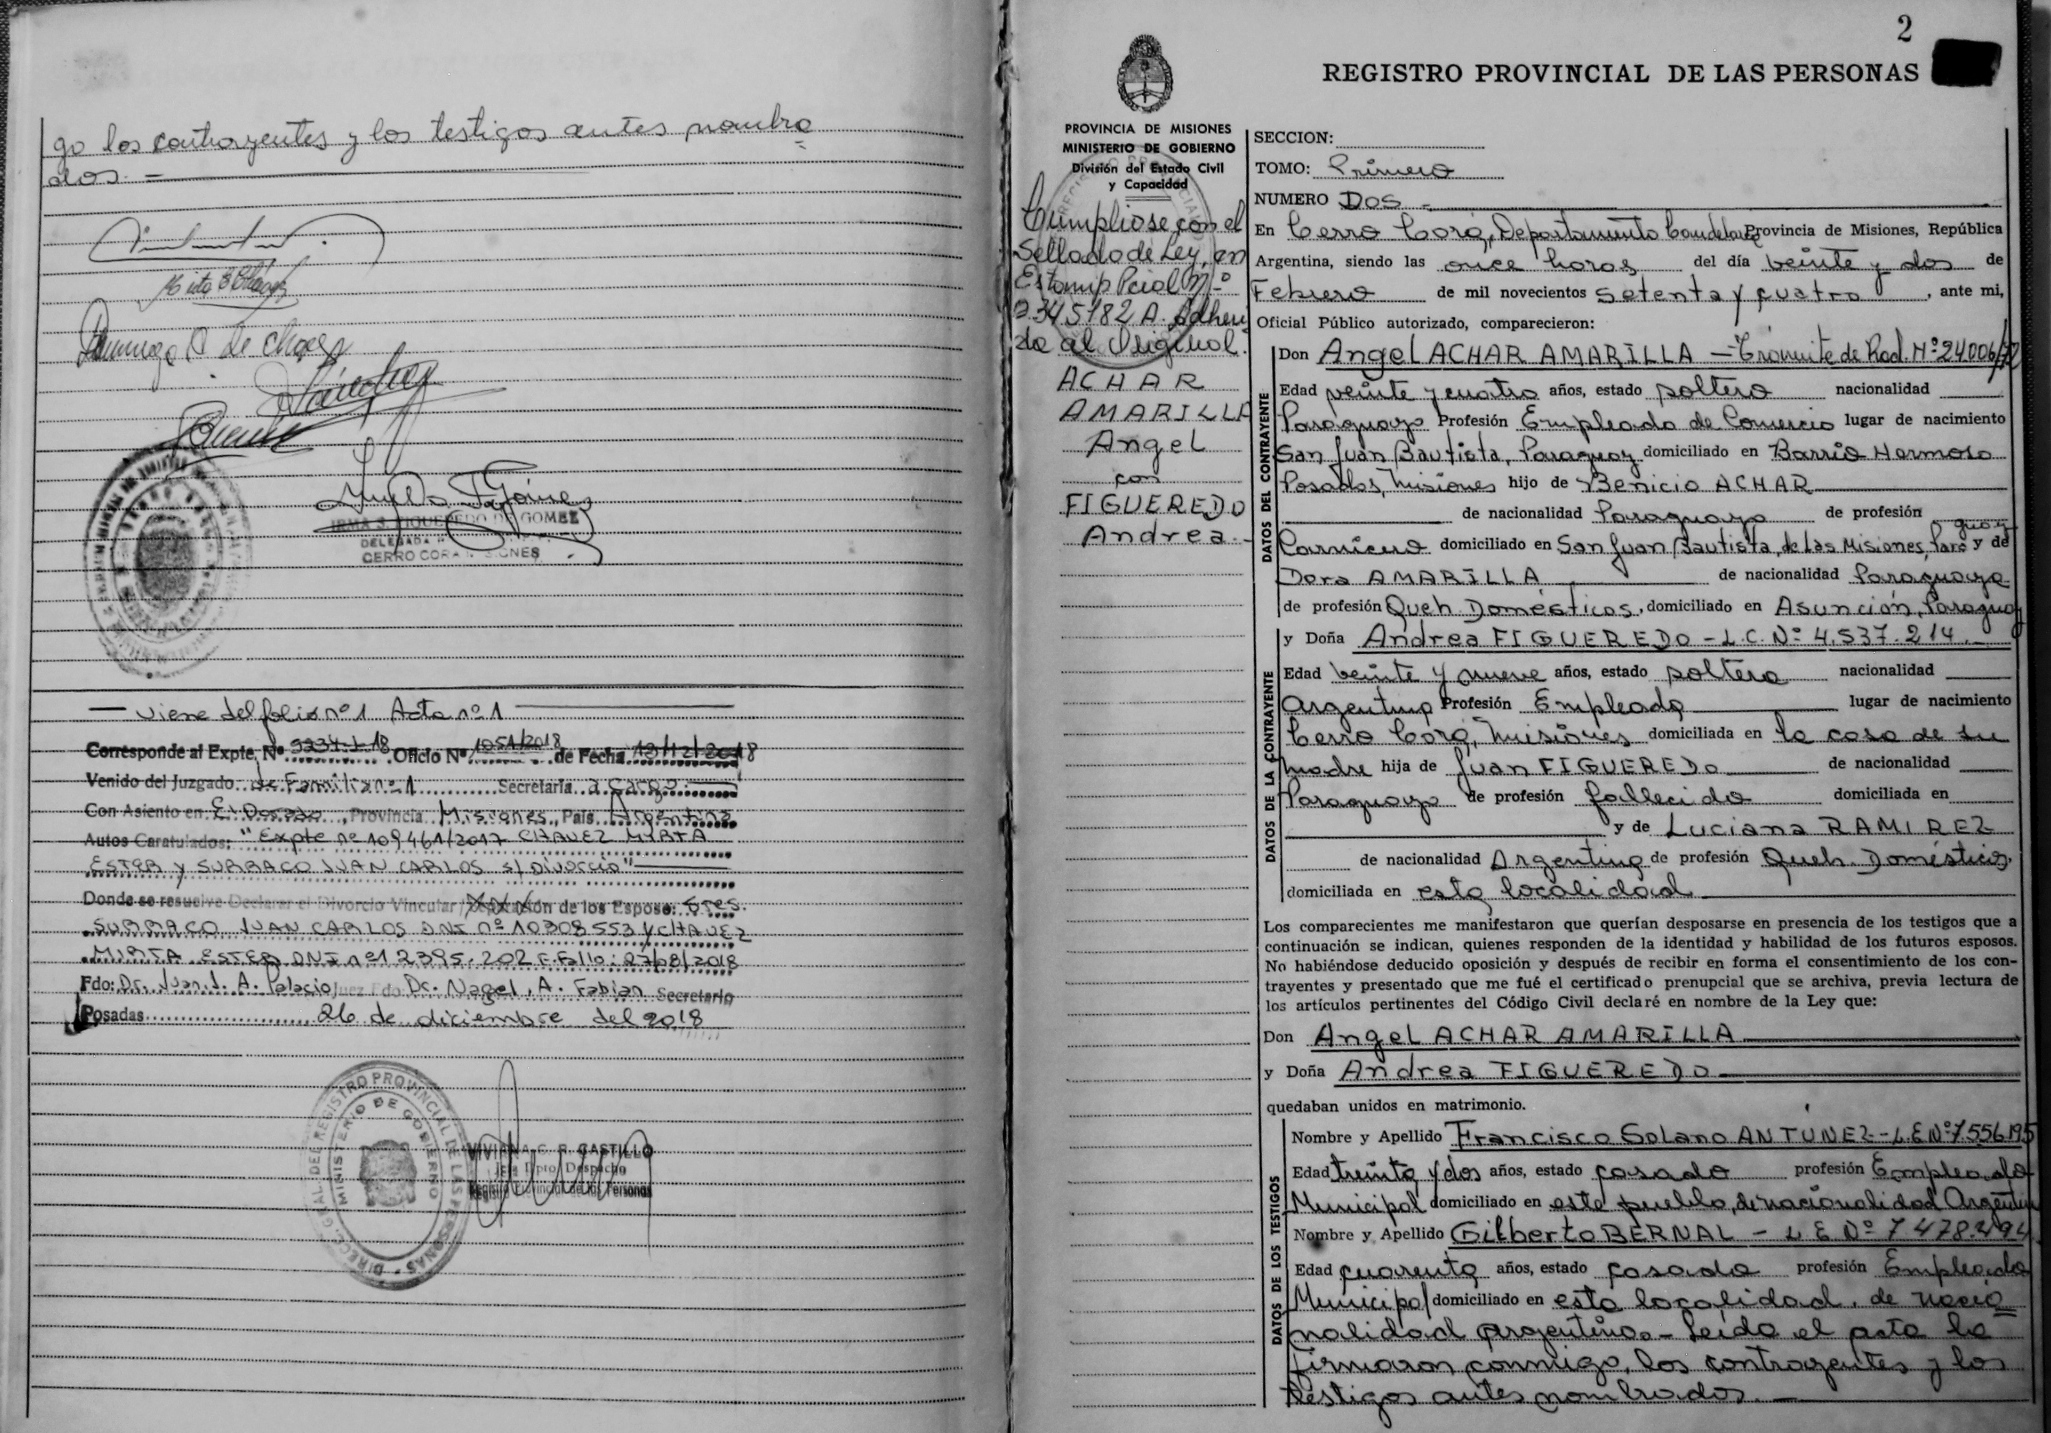 go los contrayentes y los testigos antes nombra
dos. —
IRMA S. FIGUEREDO DE GOMEZ
DELEGADA
CERRO CORA MISIONES
— viene del folio nº 1 Acta nº 1 —
Corresponde al Expte. Nº 9234-J-18 Oficio Nº 1051/2018 de Fecha 13/12/2018
Venido del Juzgado de Familia nº 1 Secretaría a Cargo: —
Con Asiento en El Dorado, Provincia Misiones, País Argentina
Autos Caratulados: "Expte nº 109461/2017 CHAVEZ MYRTA
ESTER y SURRACO JUAN CARLOS s/ Divorcio" —
Donde se resuelve Declarar el Divorcio Vincular / de los Esposo: Sres.
SURRACO JUAN CARLOS DNI nº 10308553 y CHAVEZ
MIRTA ESTER DNI nº 12395.202 F. Fallo: 27/08/2018
Fdo: Dr. Juan. J. A. Palacio Juez Fdo Dr. Nagel, A. Fabian Secretario
Posadas 26 de diciembre del 2018
DIRECC. GRAL. DEL REGISTRO PROVINCIAL DE LAS PERSONAS
MINISTERIO DE GOBIERNO
VIVIANA C. R. CASTILLO
Jefa Dpto. Despacho
Registro Provincial de las Personas
2
REGISTRO PROVINCIAL DE LAS PERSONAS
PROVINCIA DE MISIONES
MINISTERIO DE GOBIERNO
División del Estado Civil
y Capacidad
Cumpliose con el
Sellado de Ley, en
Estamp Pcial Nº
2345182 A. Adheri
da al Original.
ACHAR
AMARILLA
Angel
con
FIGUEREDO
Andrea.-
SECCION:
TOMO: Primero
NUMERO DOS -
En Cerro Corá, Departamento Candelaria Provincia de Misiones, República
Argentina, siendo las once horas del día veinte y dos de
Febrero de mil novecientos setenta y cuatro, ante mi,
Oficial Público autorizado, comparecieron:
DATOS DEL CONTRAYENTE
Don Angel ACHAR AMARILLA — Trámite de Rad. Nº 24006/72
Edad veinte y cuatro años, estado soltero nacionalidad
Paraguayo Profesión Empleado de Comercio lugar de nacimiento
San Juan Bautista, Paraguay domiciliado en Barrio Hermoso
Posadas, Misiones hijo de Benicio ACHAR
de nacionalidad Paraguayo de profesión
Carnicero domiciliado en San Juan Bautista, de las Misiones, Paraguay y de
Dora AMARILLA de nacionalidad Paraguaya
de profesión Queh. Domésticos, domiciliado en Asunción, Paraguay
DATOS DE LA CONTRAYENTE
y Doña Andrea FIGUEREDO - L.C. Nº 4.537.214.-
Edad veinte y nueve años, estado soltera nacionalidad
Argentina Profesión Empleada lugar de nacimiento
Cerro Corá, Misiones domiciliada en la casa de su
madre hija de Juan FIGUEREDO de nacionalidad
Paraguayo de profesión fallecido domiciliada en
y de Luciana RAMIREZ
de nacionalidad Argentina de profesión Queh. Domésticos,
domiciliada en esta localidad
Los comparecientes me manifestaron que querían desposarse en presencia de los testigos que a
continuación se indican, quienes responden de la identidad y habilidad de los futuros esposos.
No habiéndose deducido oposición y después de recibir en forma el consentimiento de los con-
trayentes y presentado que me fué el certificado prenupcial que se archiva, previa lectura de
los artículos pertinentes del Código Civil declaré en nombre de la Ley que:
Don Angel ACHAR AMARILLA
y Doña Andrea FIGUEREDO
quedaban unidos en matrimonio.
DATOS DE LOS TESTIGOS
Nombre y Apellido Francisco Solano ANTUNEZ - L.E Nº 7.556.195
Edad treinta y dos años, estado casado profesión Empleado
Municipal domiciliado en este pueblo, de nacionalidad Argentina
Nombre y Apellido Gilberto BERNAL - L.E Nº 7.478.494
Edad cuarenta años, estado casado profesión Empleado
Municipal domiciliado en esta localidad, de nacio
nalidad Argentina.- Leída el acta la
firmaron conmigo, los contrayentes y los
testigos antes nombrados. —